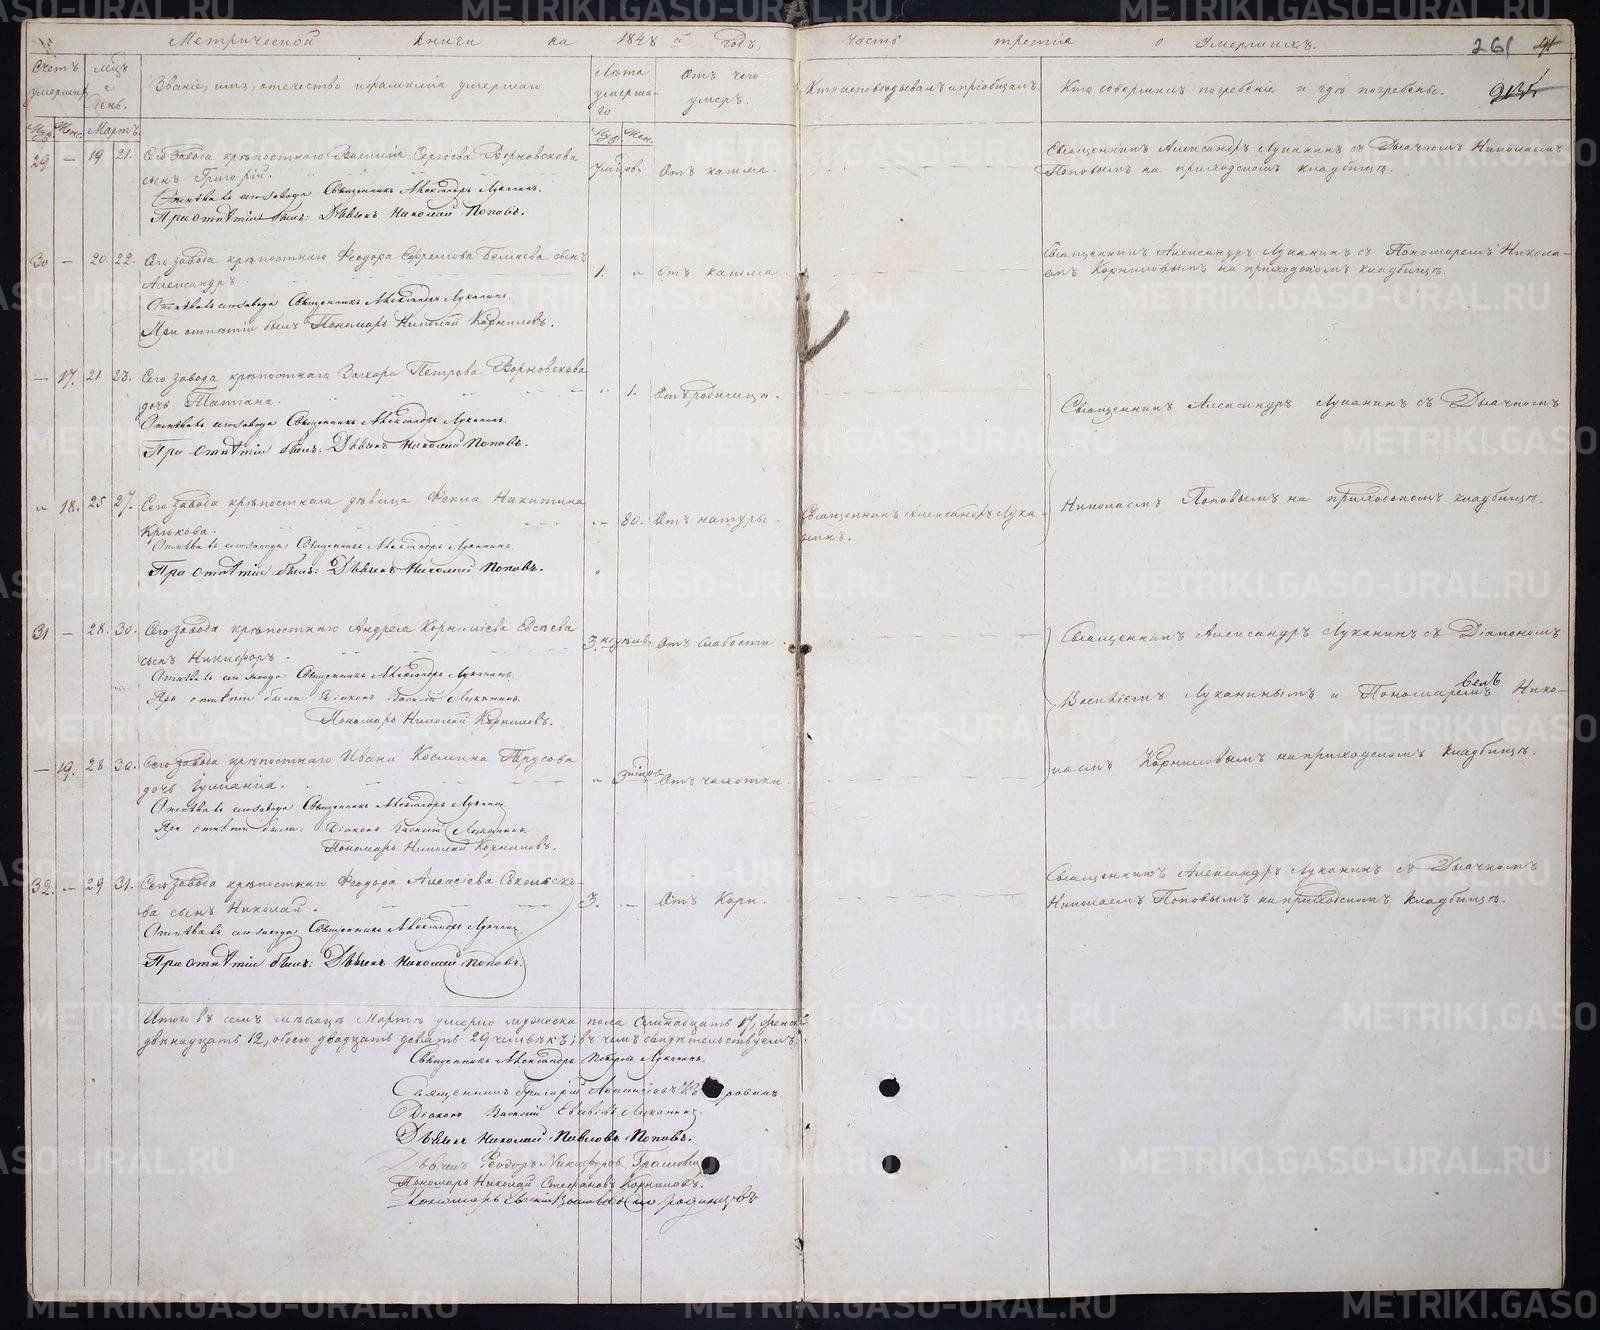 Метрической книги на 1848й годъ,
часть третія о умершихъ.
261
Счетъ умершихъ
Мцъ и День.
Званіе, имя, отечество и фамилія умершаго
Лѣта умершаго
Отъ чего умеръ.
Кто исповѣдывалъ и пріобщалъ.
Кто совершилъ погребеніе и гдѣ погребены.
Муж. Жен. Мартъ.
Муж. Жен.
29 — 19 21. Сего завода крѣпостнаго Василія Сергіева Ворновскова
сынъ Григорій.
Отпѣвалъ сего завода Священникъ Александръ Луканинъ.
При отпѣтіи былъ: Дьячекъ Николай Поповъ.
Отъ кашля.
Священникъ Александръ Луканинъ съ Дьячкомъ Николаемъ
Поповымъ на приходскомъ кладбищѣ.
30 — 20. 22. Сего завода крѣпостнаго Феодора Ефремова Беляева сынъ
Александръ.
Отпѣвалъ сего завода Священникъ Александръ Луканинъ.
При отпѣтіи былъ Пономарь Николай Корниловъ.
1. „ отъ кашля
Священникъ Александръ Луканинъ съ Пономаремъ Никола-
емъ Корниловымъ на приходскомъ кладбищѣ.
— 17. 21 23. Сего завода крѣпостнаго Захара Петрова Ворновскова
дочь Татіана.
Отпѣвалъ сего завода Священникъ Александръ Луканинъ.
При отпѣтіи былъ: Дьячекъ Николай Поповъ.
„ 1. Отъ родимца.
Священникъ Александръ Луканинъ съ Дьячкомъ
„ 18. 25 27. Сего завода крѣпостнаго дѣвица Фекла Никитина
Крюкова.
Отпѣвалъ сего завода Священникъ Александръ Луканинъ.
При отпѣтіи былъ: Дьячекъ Николай Поповъ.
„ 80. Отъ натуры.
Священникъ Александръ Лука-
нинъ.
Николаемъ Поповымъ на приходскомъ кладбищѣ.
31 — 28. 30. Сего завода крѣпостнаго Андрея Корнилиева Евсѣева
сынъ Никифоръ.
Отпѣвалъ сего завода Священникъ Александръ Луканинъ.
При отпѣтіи были Діаконъ Василій Луканинъ.
Пономарь Николай Корниловъ.
3. недѣль. Отъ слабости
Священникъ Александръ Луканинъ съ Діакономъ
Василіемъ Луканинымъ и Пономаремъ Нико-
— 19. 28 30. Сего завода крѣпостнаго Ивана Косьмина Трусова
дочь Гуліанія.
Отпѣвалъ сего завода Священникъ Александръ Луканинъ
При отпѣтіи были: Діаконъ Василій Луканинъ.
Пономарь Николай Корниловъ.
Отъ чахотки.
лаемъ Корниловымъ на приходскомъ кладбищѣ.
32. — 29 31. Сего завода крѣпостнаго Феодора Алексіева Сокольско-
ва сынъ Николай.
Отпѣвалъ сего завода Священникъ Александръ Луканинъ
При отпѣтіи былъ: Дьячекъ Николай Поповъ.
3. — Отъ Кори.
Священникъ Александръ Луканинъ съ Дьячкомъ
Николаемъ Поповымъ на приходскомъ кладбищѣ.
Итого въ семъ мѣсяцѣ Мартѣ умерло мужеска пола Семнадцать 17, женска
двѣнадцать 12, обоего двадцать девять 29 человѣкъ; въ чемъ свидѣтельствуемъ:
Священникъ Александръ Петровъ Луканинъ.
Священникъ Григорій
Діаконъ Василій Луканинъ.
Дьячекъ Николай Павловъ Поповъ.
Дьячекъ Феодоръ Никифоровъ
Пономарь Николай Стефановъ Корниловъ.
Пономарь Евгеній
METRIKI.GASO-URAL.RU